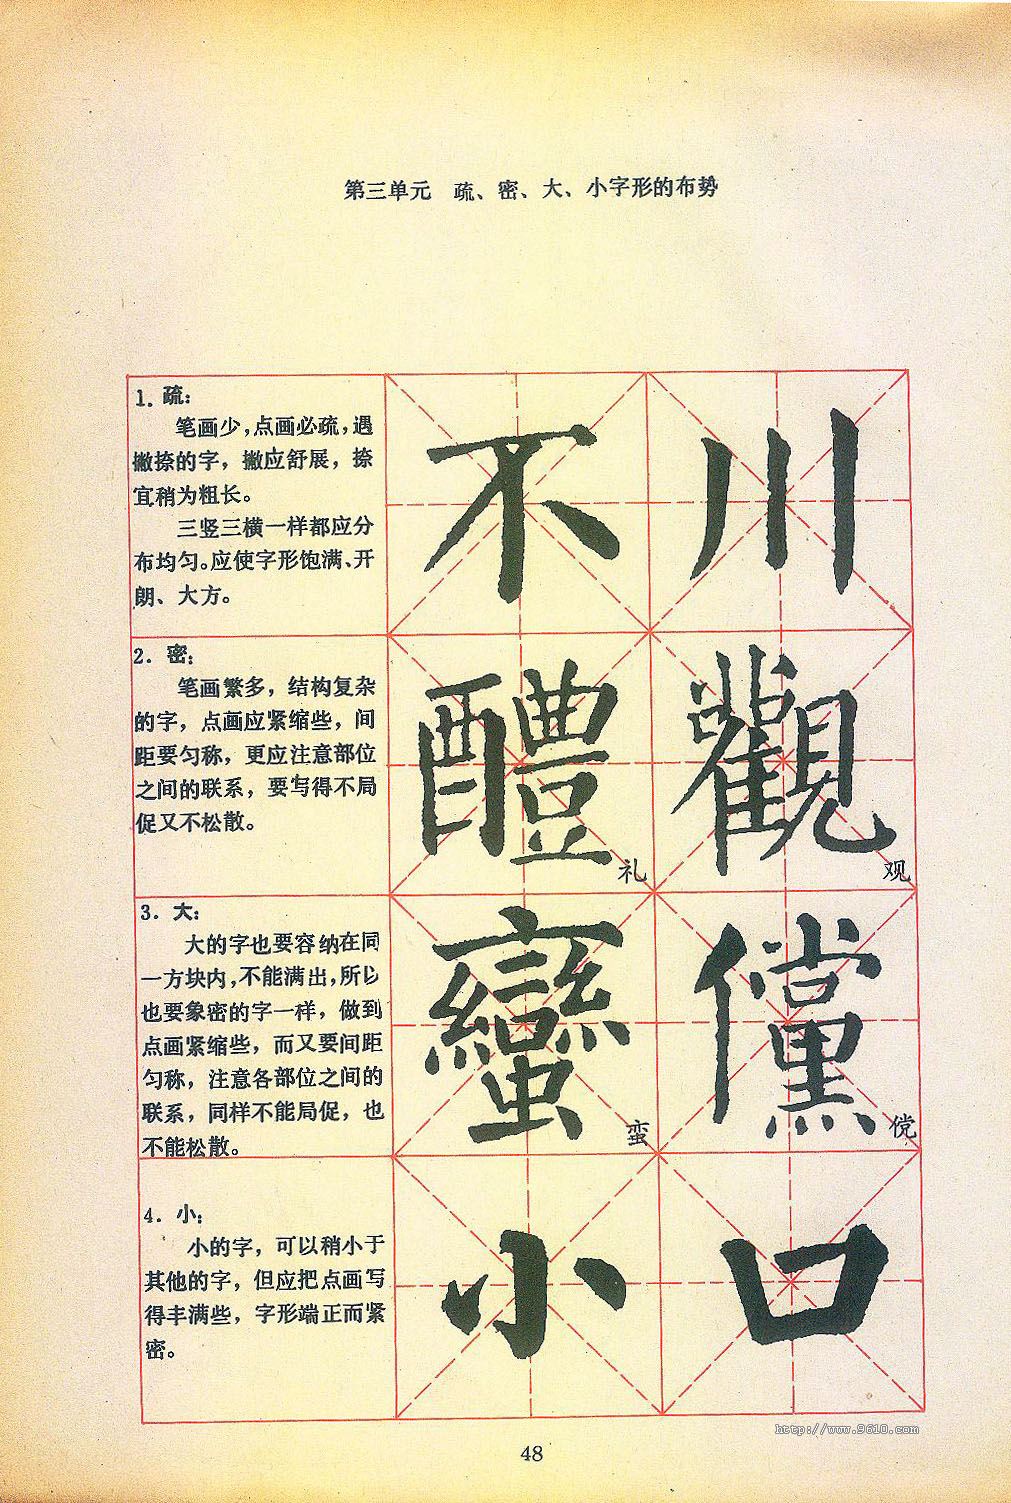 第三单元　疏、密、大、小字形的布势
1. 疏：
笔画少，点画必疏，遇
撇捺的字，撇应舒展，捺
宜稍为粗长。
三竖三横一样都应分
布均匀。应使字形饱满、开
朗、大方。
不 川
2. 密：
笔画繁多，结构复杂
的字，点画应紧缩些，间
距要匀称，更应注意部位
之间的联系，要写得不局
促又不松散。
醴 觀
礼 观
3. 大：
大的字也要容纳在同
一方块内，不能满出，所以
也要象密的字一样，做到
点画紧缩些，而又要间距
匀称，注意各部位之间的
联系，同样不能局促，也
不能松散。
蠻 儻
蛮 傥
4. 小：
小的字，可以稍小于
其他的字，但应把点画写
得丰满些，字形端正而紧
密。
小 口
http://www.9610.com
48